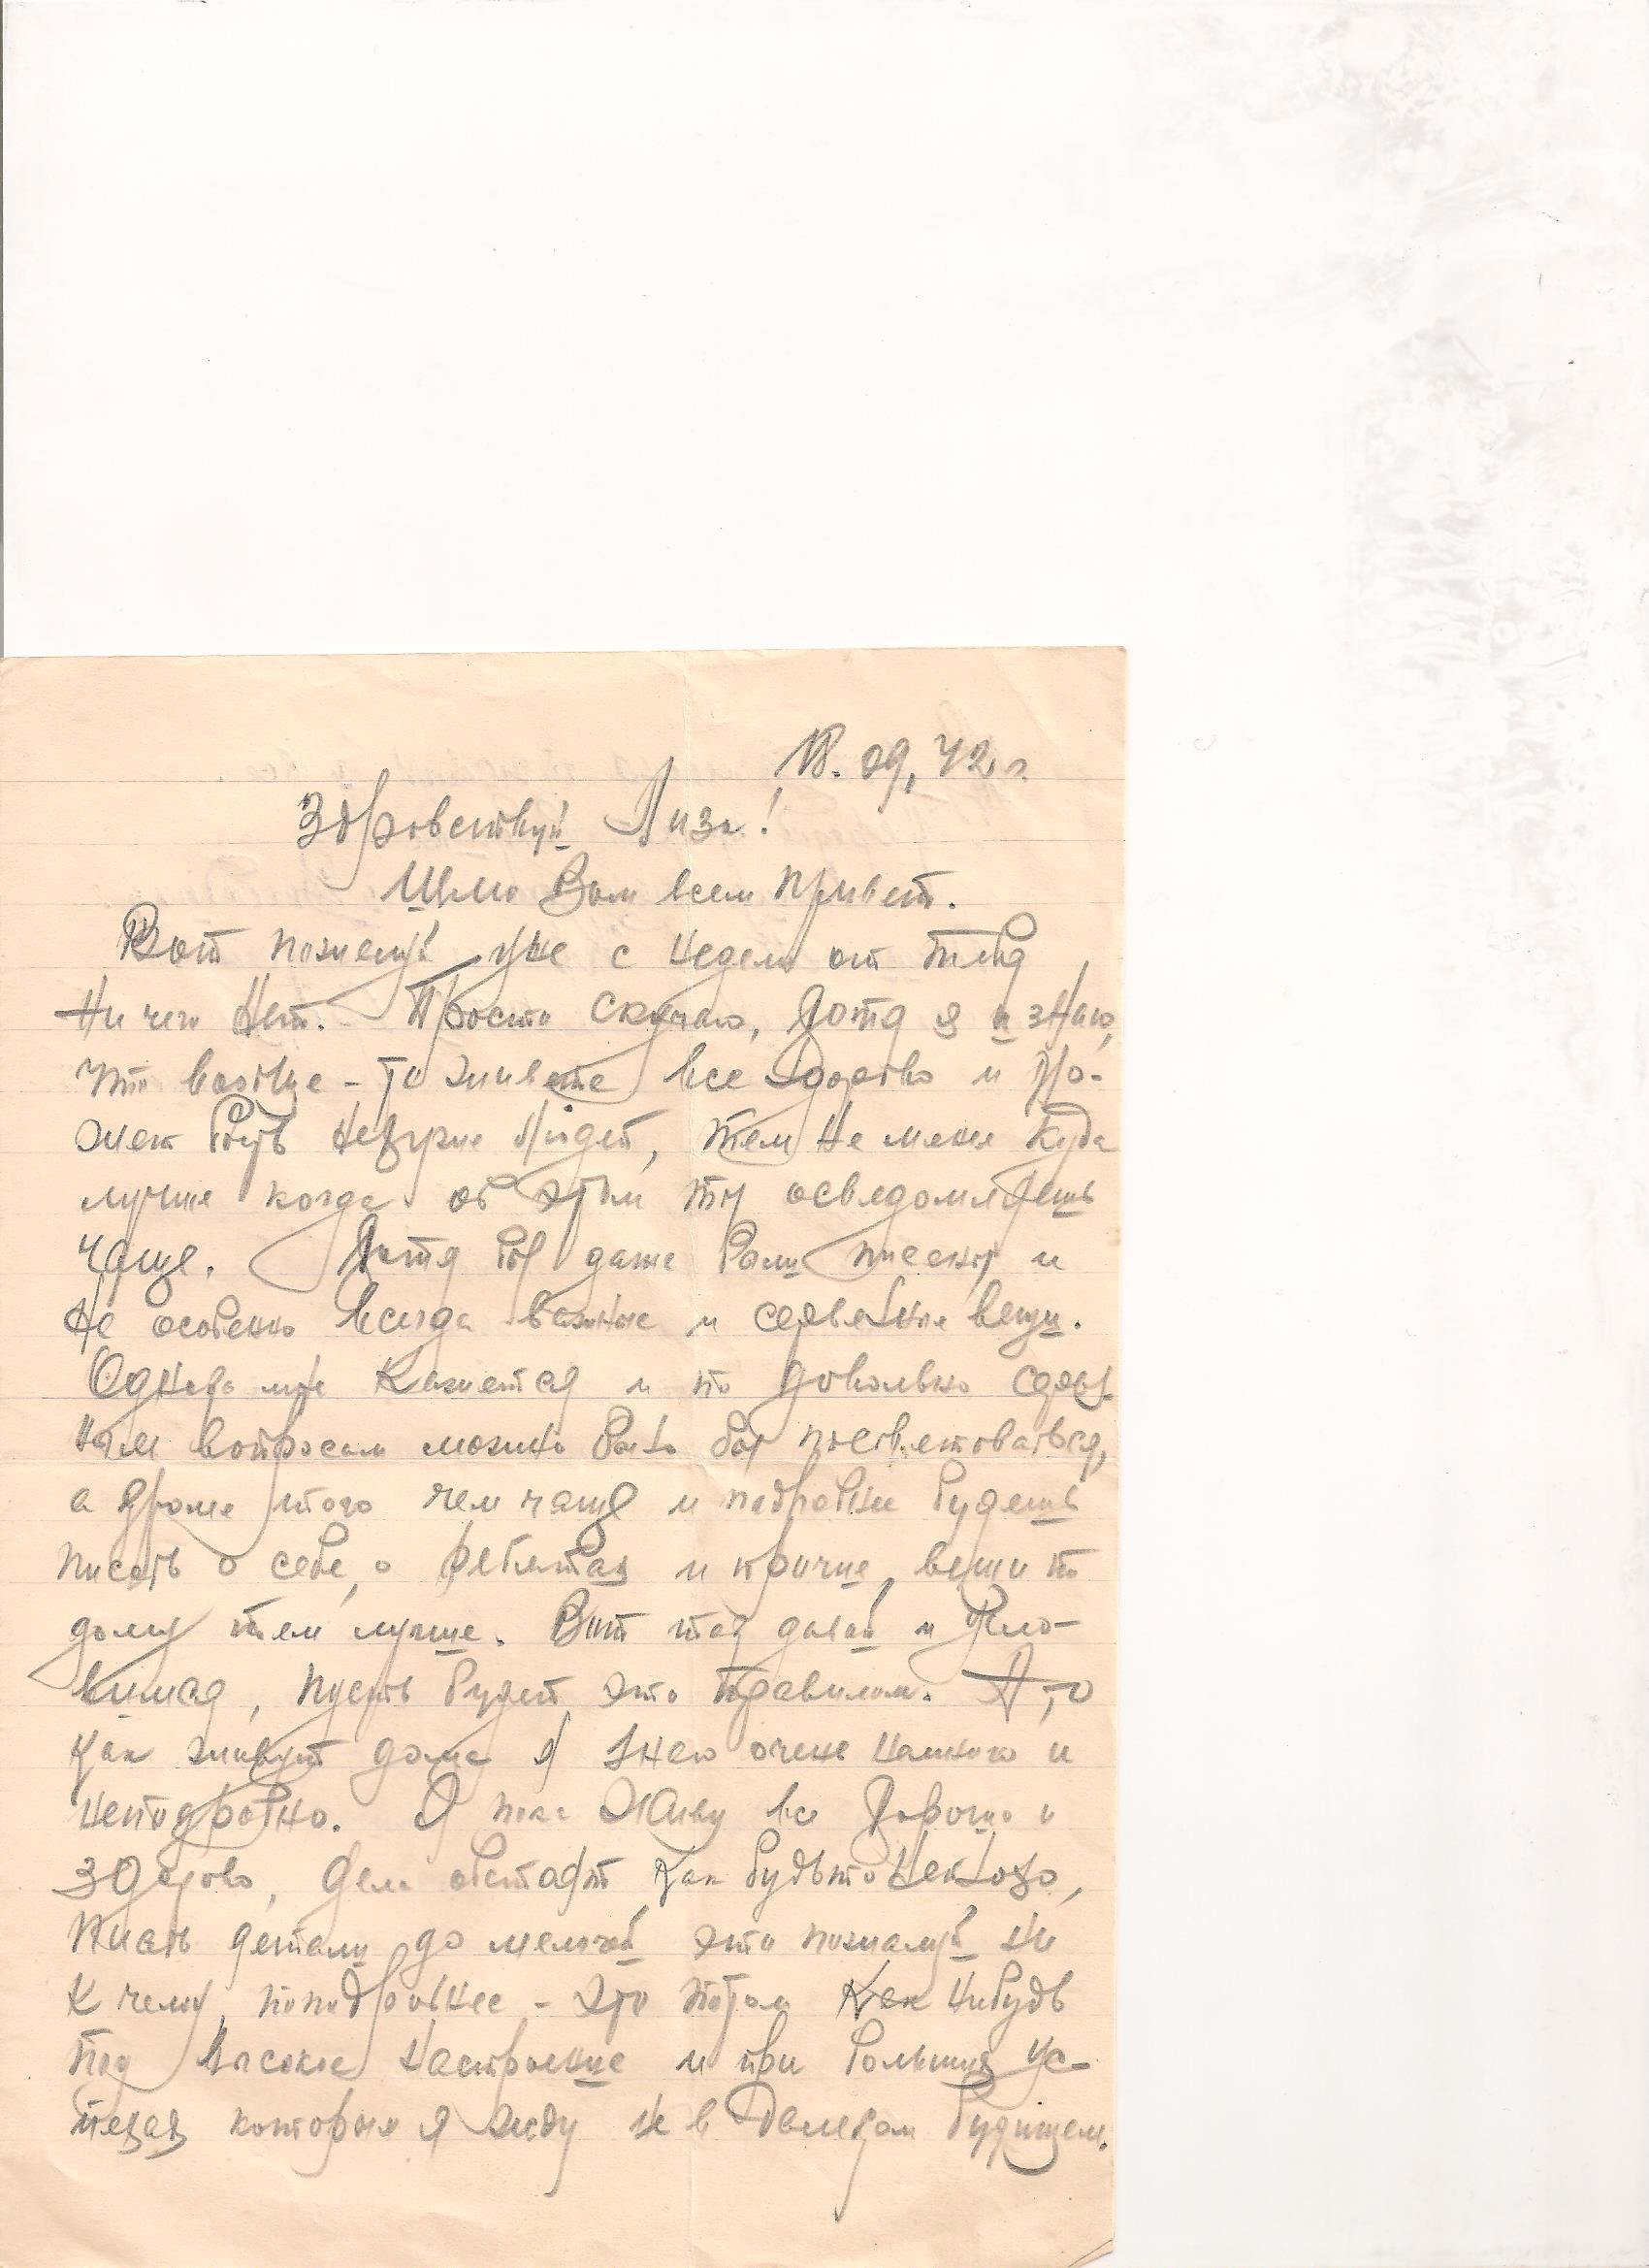 18. 09, 42 г.
Здравствуй Лиза!
Шлю Вам всем привет.
Вот пожалуй уже с неделю от тебя
ничего нет. Просто скучаю, хотя я и знаю,
что вообще-то живете все здорово и мо-
жет быть не хуже людей, тем не менее куда
лучше когда об этом ты осведомляешь
чаще. Хотя бы даже были писаны и
не особенно всегда важные и серьезные вещи.
Однако мне кажется и по довольно серьез-
ным вопросам можно было бы посоветоваться,
а кроме того чем чаще и подробней будешь
писать о себе, о ребятах и прочие вещи по
дому тем лучше. Вот так давай и усло-
вимся, пусть будет это правилом. А, то
как живут дома я знаю очень немного и
неподробно. Я пока живу все хорошо и
здорово, дела обстоят как будьто неплохо,
писать детали до мелочей это пожалуй не
к чему, поподробнее - это потом как нибудь
под высокое настроение и при больших ус-
пехах которые я жду не в далеком будущем.